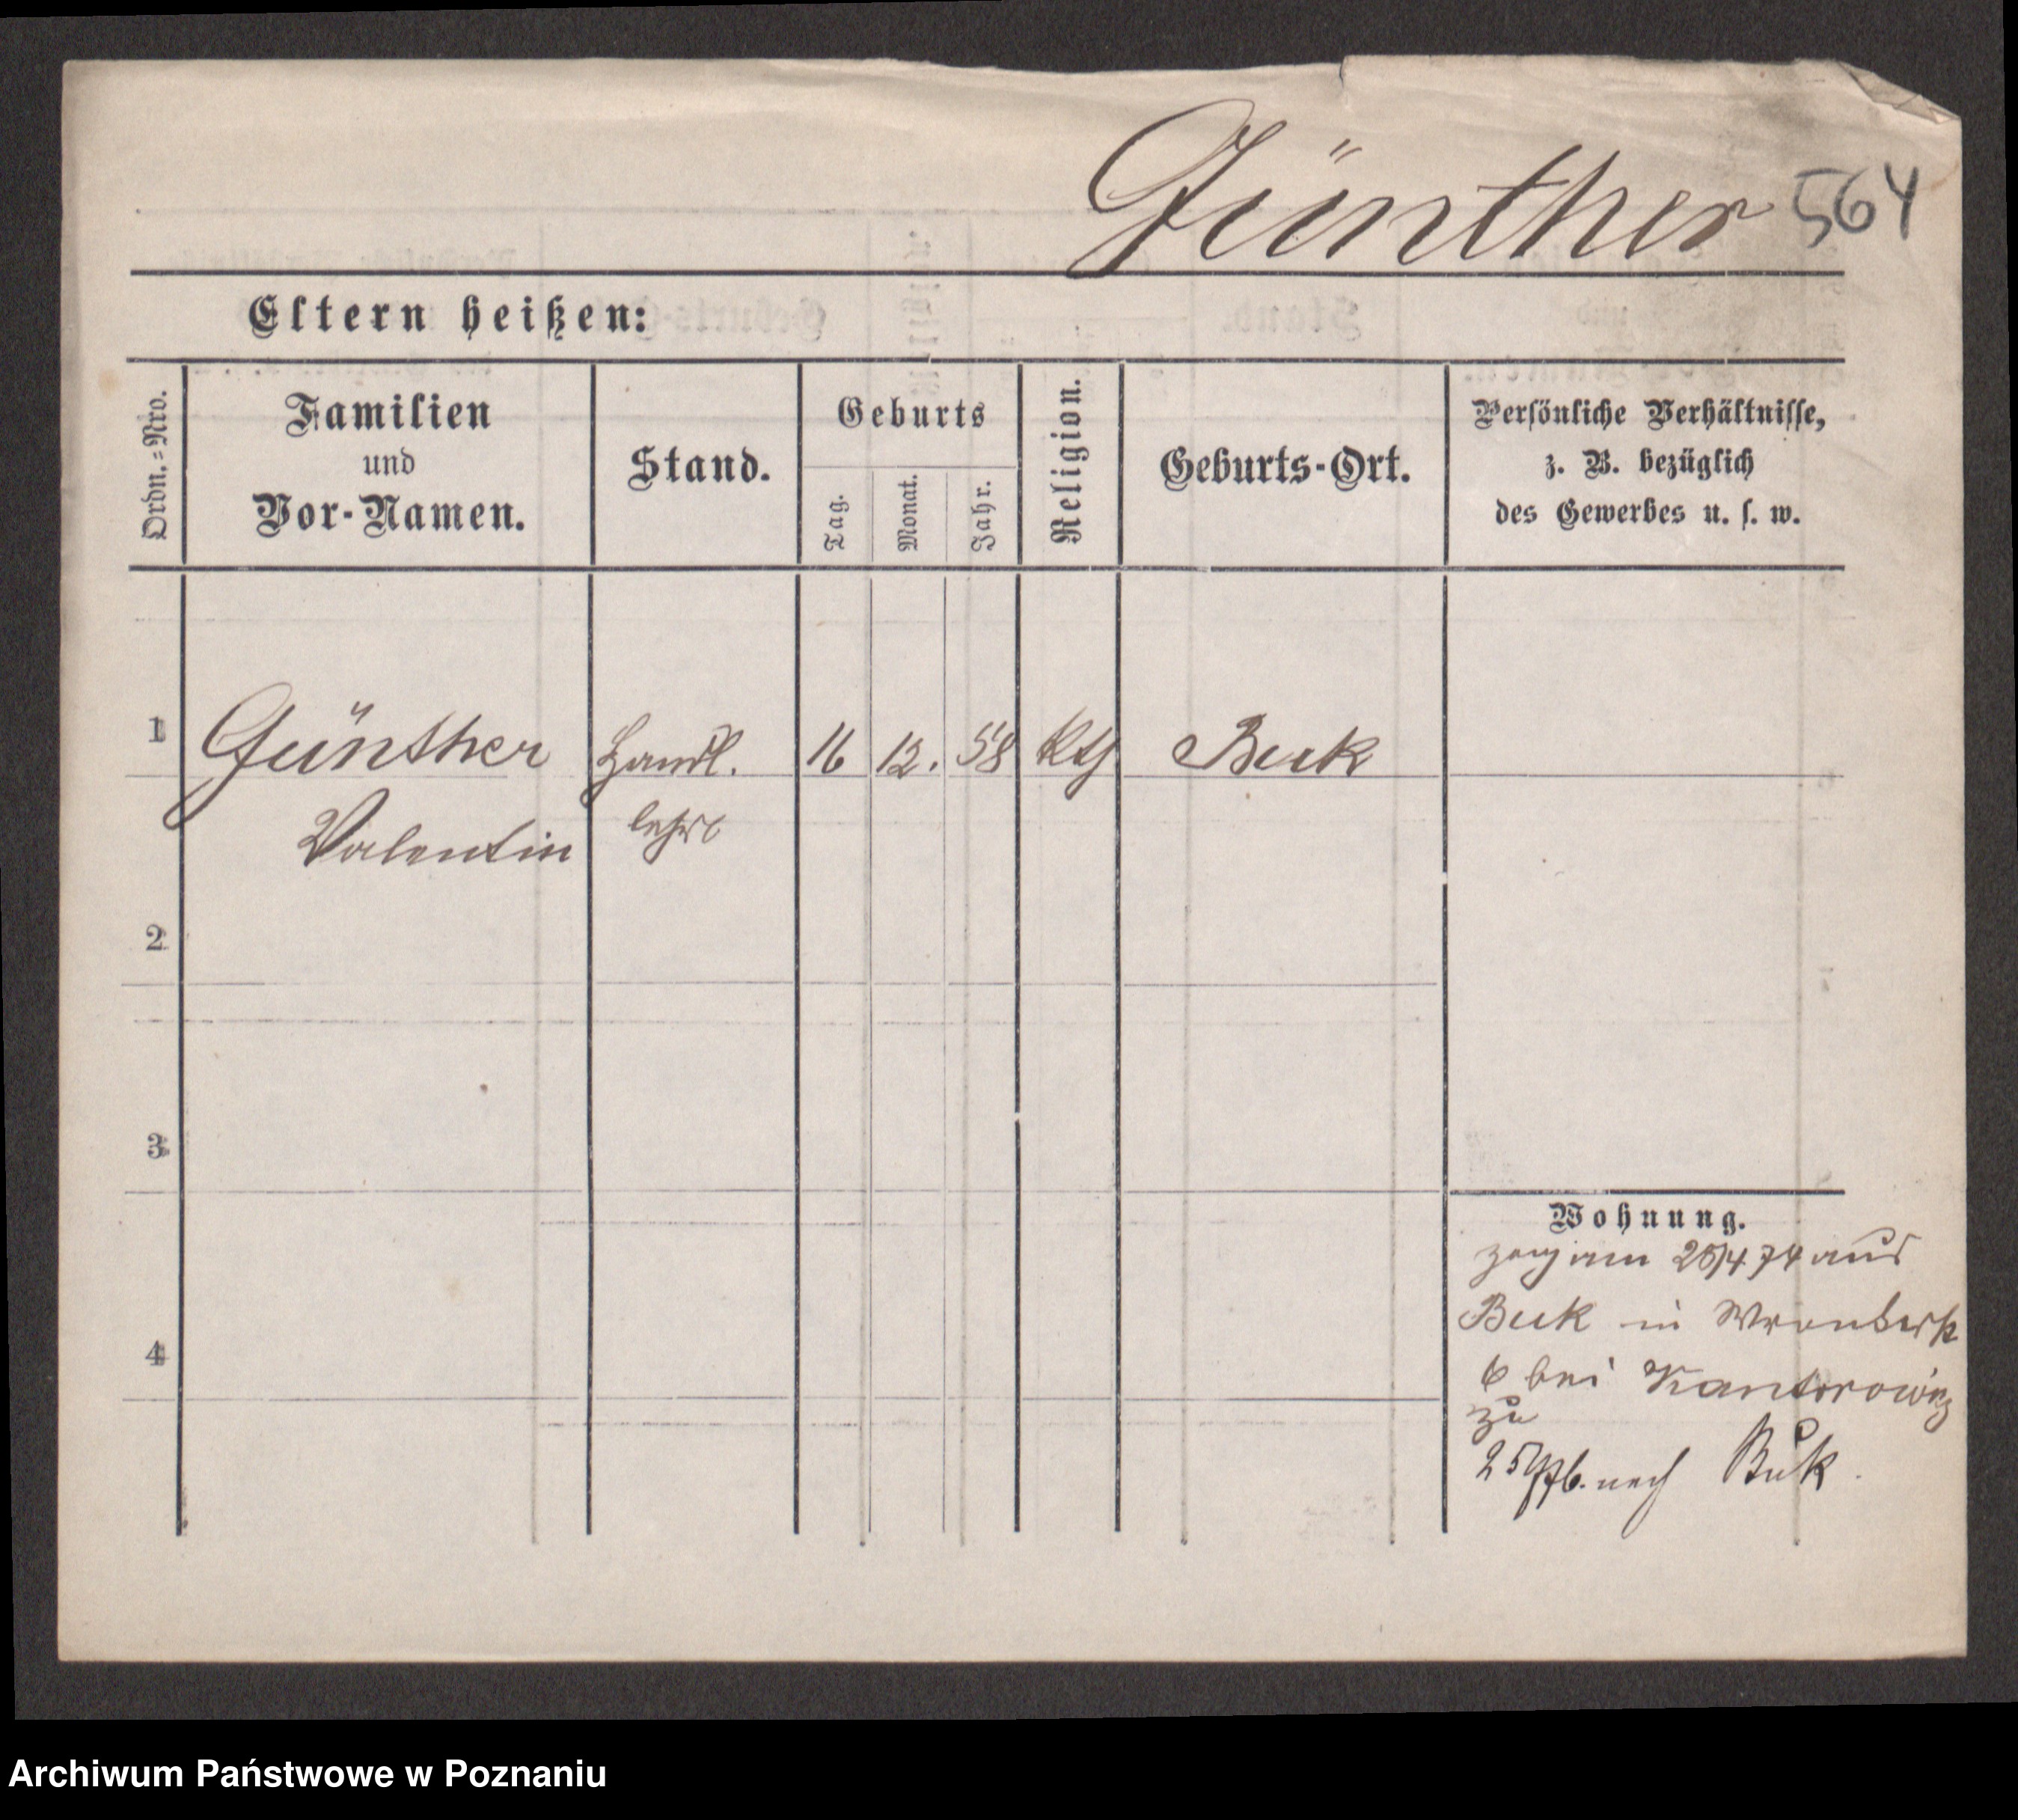 Günther 564
Eltern heißen:
Ordn.=Nro.
Familien
und
Vor-Namen.
Stand.
Geburts
Tag.
Monat.
Jahr.
Religion.
Geburts-Ort.
Persönliche Verhältnisse,
z. B. bezüglich
des Gewerbes u. s. w.
1 Günther Handl. 16 12. 58 kth Buk
Valentin lehrl
2
3
Wohnung.
zog am 25/4 74 aus
Buk in
4
6 bei Kantorowicz
zu
nach Buk.
Archiwum Państwowe w Poznaniu